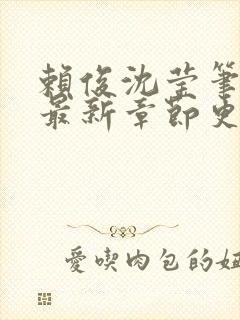 賴俊沈莹筆
最新章節更
愛喫肉包的妞